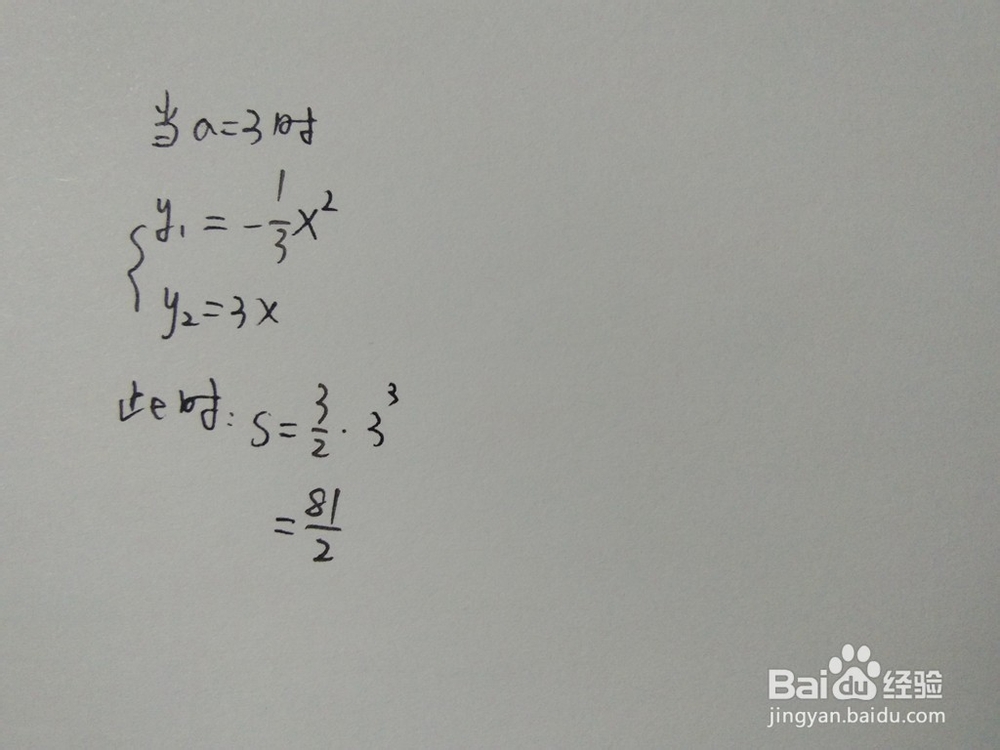 当a=3时
y₁=-1/3x²
y₂=3x
此时:S=3/2·3³
=81/2
Baidu经验
jingyan.baidu.com